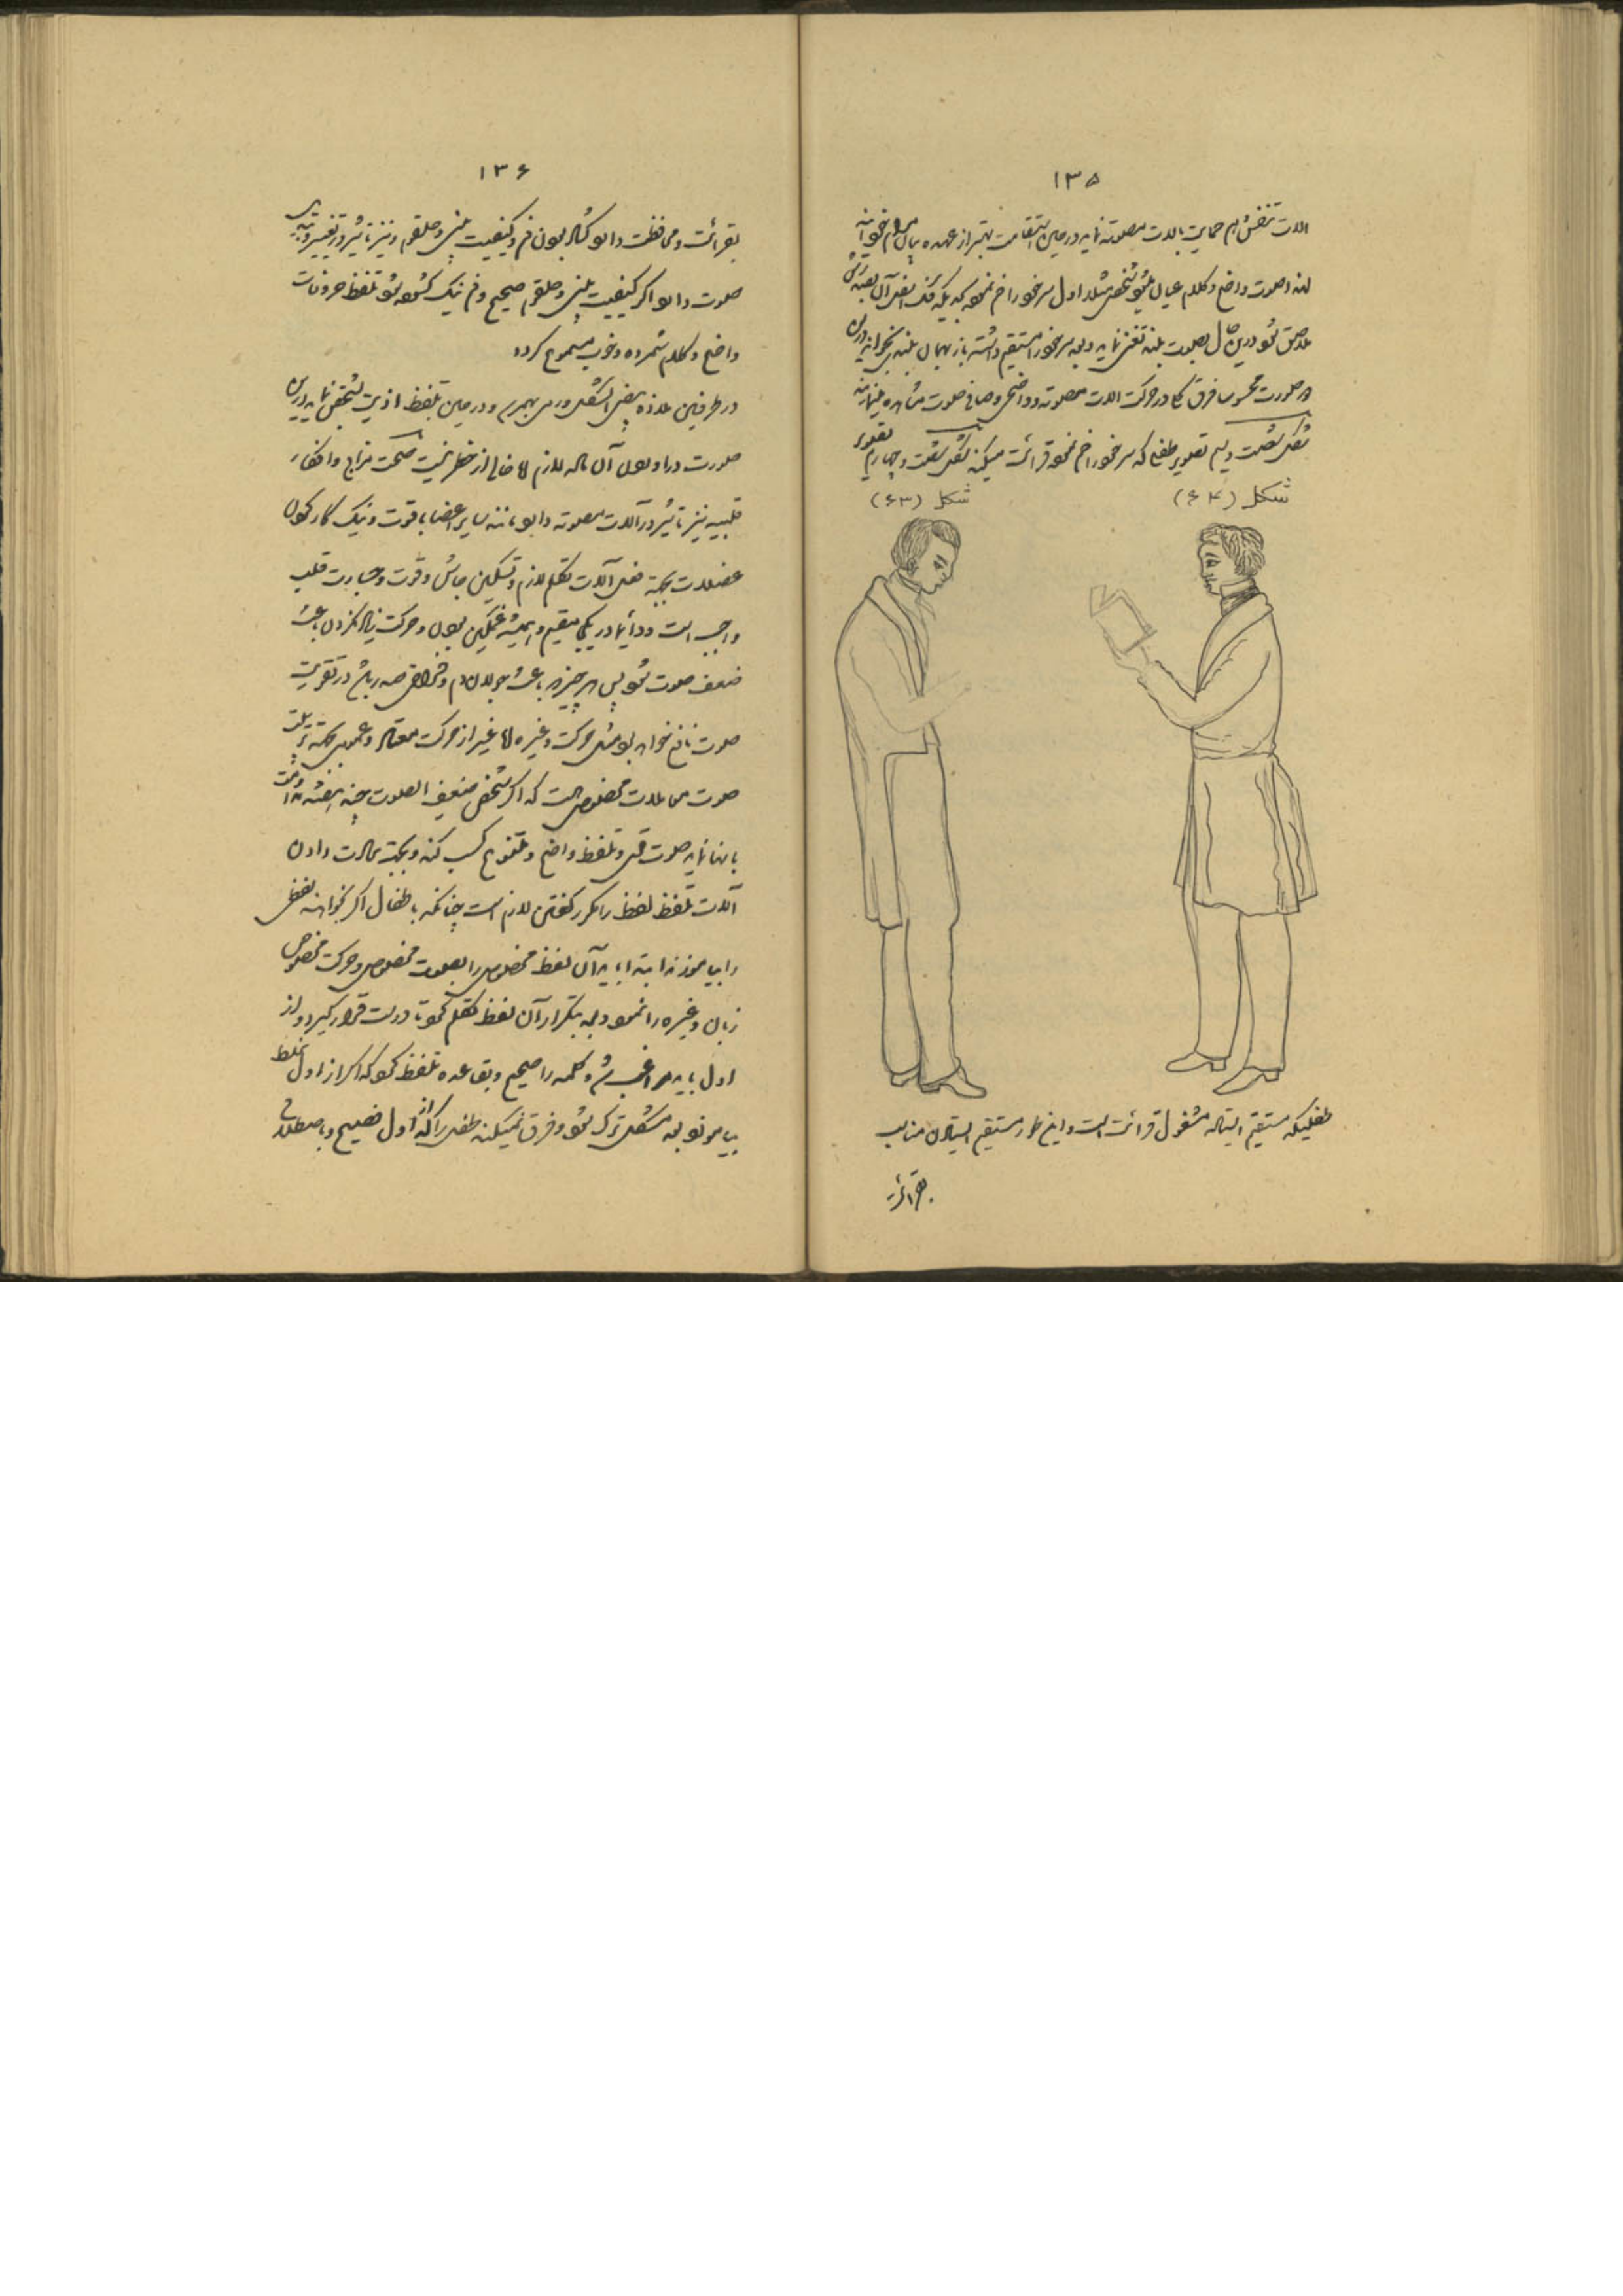 ۱۳۵
الات تنفس هم حمایت بالات مصوته نماید در حین استقامت بهتر از عهده بیان برمیخواند
لهذا صوت واضح و کلام عیان میشود شخص مثلا اول سر خود را خم نموده که فک اسفل آن بسینه اش
ملاصق شود در این حال بصوت بلند تغنی نماید و بعد سر خود را مستقیم داشته باز بهمان بلندی بخواند در این
صورت محسوسا فرق کلی در حرکت الات مصوته و واضحی و صافی صوت مشاهده مینماید
شکل شصت و سیم تصویر طفلی که سر خود را خم نموده قرائت میکند شکل شصت و چهارم تصویر
شکل (۶۴)
شکل (۶۳)
طفلیکه مستقیم ایستاده مشغول قرائت است و این طور مستقیم ایستادن مناسب
بقرائت
۱۳۶
بقرائت و محافظت دارد گشاده بودن فم و کیفیت بینی و حلقوم و نیز تاثیر در تغییر و تبدیل
صوت دارد اگر کیفیت بینی و حلقوم صحیح و فم نیک گشوده شود تلفظ حروفات
واضح و کلام شمرده و خوب مسموع گردد
در طرفین ملازه بعضی اشکال ورمی بهم رسد و در حین تلفظ اذیت بشخص نماید در این
صورت دراوردن آن ماده لازم اما خالی از خطر نیست صحت مزاج و افکار
قلبیه نیز تاثیر در آلات مصوته دارد مانند سایر اعضا با قوت و نیک کار کردن
عضلات بجهة فعل آلات تکلم لازم و تسکین جاش و قوت و جسارت قلب
واجب است و دائما در یکجا مقیم و همیشه غمگین بودن و حرکت زیاد نکردن باعث
ضعف صوت شود پس هر چیز که باعث جولان دم و فراخی صدر باشد در تقویت
صوت نافع خواهد بود مثل حرکت و غیره اما غیر از حرکت معتاد و عمومی بجهة تربیت
صوت معاملات مخصوصی است که اگر شخص ضعیف الصوت چند هفته مداومت
بانها نماید صوت قوی و تلفظ واضح و متنوع کسب کند و بجهة مهارت دادن
آلات تلفظ لفظ را مکرر گفتن لازم است چنانکه باطفال اگر بخواهند لفظی
را بیاموزند ابتدا باید آن لفظ مخصوص را بصوت مخصوص و حرکت مخصوص
زبان و غیره را نمود و بعد بتکرار آن لفظ تکلم نمود تا درست قرار گیرد و از
اول باید مراغب شد و کلمه را صحیح و بقاعده تلفظ نمود که اگر از اول غلط
بیاموزد بعد مشکل ترک شود و فرق نمیکند طفلی را که از اول فصیح و باصطلاح